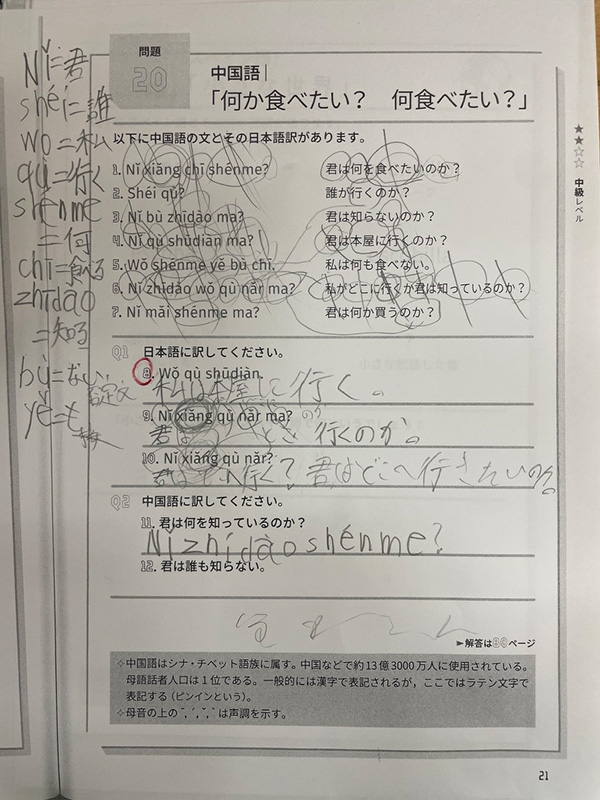 問題
20
中国語
「何か食べたい？ 何食べたい？」
★★☆☆ 中級レベル
以下に中国語の文とその日本語訳があります。
1. Nǐ xiǎng chī shénme? 君は何を食べたいのか？
2. Shéi qù? 誰が行くのか？
3. Nǐ bù zhīdào ma? 君は知らないのか？
4. Nǐ qù shūdiàn ma? 君は本屋に行くのか？
5. Wǒ shénme yě bù chī. 私は何も食べない。
6. Nǐ zhīdào wǒ qù nǎr ma? 私がどこに行くか君は知っているのか？
7. Nǐ mǎi shénme ma? 君は何か買うのか？
Nǐ=君
shéi=誰
wǒ=私
qù=行く
shénme
=何
chī=食べる
zhīdào
=知る
bù=ない
否定文
yě=も
Q1 日本語に訳してください。
8. Wǒ qù shūdiàn.
私は本屋に行く。
9. Nǐ xiǎng qù nǎr ma?
君は 行くのか。
10. Nǐ xiǎng qù nǎr?
君は へ行く？君はどこへ行きたいのか。
Q2 中国語に訳してください。
11. 君は何を知っているのか？
Nǐ zhídào shénme?
12. 君は誰も知らない。
►解答は89ページ
✧中国語はシナ・チベット語族に属す。中国などで約13億3000万人に使用されている。
母語話者人口は1位である。一般的には漢字で表記されるが，ここではラテン文字で
表記する（ピンインという）。
✧母音の上の ˉ, ˊ, ˇ, ˋ は声調を示す。
21